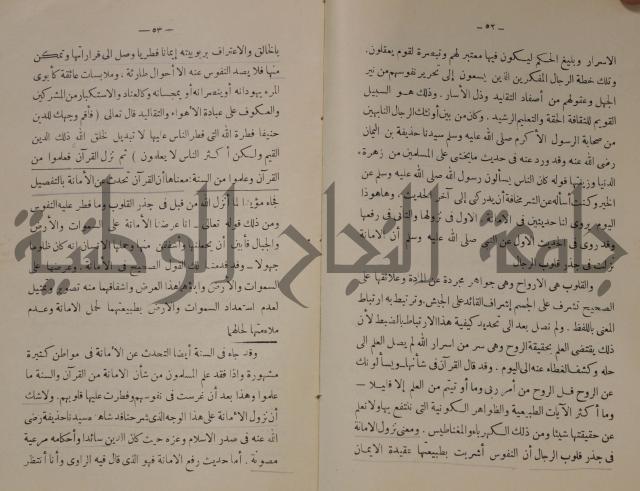 — ٥٢ —
الاسرار وبليغ الحكم ليكون فيها معتبر لهم وتبصرة لقوم يعقلون.
وتلك خطة الرجال المفكرين الذين يسعون إلى تحرير نفوسهم من نير
الجهل وعقولهم من أصفاد التقاليد وذل الأسار. وذلك هو السبيل
القويم للثقافة الحقة والتعليم الرشيد. وكان من بين أولئك الرجال النابهين
من صحابة الرسول الأكرم صلى الله عليه وسلم سيدنا حذيفة بن اليمان
رضى الله عنه وقد ورد عنه في حديث ما يخشى على المسلمين من زهرة
الدنيا وزينتها قوله كان الناس يسألون رسول الله صلى الله عليه وسلم عن
الخير وكنت أسأله عن الشر مخافة أن يدركني إلى آخر الحديث. وها هو ذا
اليوم يروى لنا حديثين في الأمانة. الاول في نزولها والثاني في رفعها
وقد روى في الحديث الأول عن النبي صلى الله عليه وسلم أن الأمانة
نزلت في جذر قلوب الرجال
والقلوب هي الأرواح وهي جواهر مجردة عن المادة وعلائقها على
الصحيح تشرف على الجسم إشراف القائد على الجيش وترتبط به ارتباط
المعنى باللفظ. ولم نصل بعد الى تحديد كيفية هذا الارتباط بالضبط لأن
ذلك يقتضى العلم بحقيقة الروح وهي سر من اسرار الله لم يصل العلم الى
حله وكشف الغطاء عنه الى اليوم. وقد قال القرآن في شأنها ـ ويسألونك
عن الروح قل الروح من أمر ربى وما أوتيتم من العلم إلا قليلا ـ
وما أكثر الآيات الطبيعية والظواهر الكونية التي ننتفع بها ولا نعلم
عن حقيقتها شيئا ومن ذلك الكهرباء والمغناطيس. ومعنى نزول الامانة
في جذر قلوب الرجال أن النفوس أشربت بطبيعتها عقيدة الايمان
— ٥٣ —
بالخالق والاعتراف بربوبيته إيمانا فطريا وصل الى قراراتها وتمكن
منها فلا يصد النفوس عنه الا أحوال طارئة، وملابسات عائقة كأبوى
المرء يهودانه أو ينصرانه أو يمجسانه وكالعناد والاستكبار من المشركين
والعكوف على عبادة الأهواء والتقاليد قال تعالى (فأقم وجهك للدين
حنيفا فطرة الله التي فطر الناس عليها لا تبديل لخلق الله ذلك الدين
القيم ولكن أكثر الناس لا يعلمون) ثم نزل القرآن فعلموا من
القرآن وعلموا من السنة: معناها أن القرآن تحدث عن الأمانة بالتفصيل
فجاء مؤيدا لما أنزل الله من قبل في جذر القلوب وما فطر عليه النفوس
ومن ذلك قوله تعالى ـ انا عرضنا الأمانة على السموات والأرض
والجبال فأبين أن يحملنها وأشفقن منها وحملها الإنسان إنه كان ظلوما
جهولا ـ وقد قدمنا لك القول الصحيح في الأمانة. وعرضها على
السموات والأرض وإباؤهما هذا العرض واشفاقهما منه تصوير وتمثيل
لعدم استعداد السموات والأرض بطبيعتهما لحمل الامانة وعدم
ملاءمتها لحالهما
وقد جاء في السنة أيضا التحدث عن الأمانة في مواطن كثيرة
مشهورة واذا فقد علم المسلمون من شأن الامانة من القرآن والسنة ما
علموا وهذا بعد أن غرست في نفوسهم وفطرت عليها قلوبهم. ولا شك
أن نزول الأمانة على هذا الوجه الذي شرحنا قد شاهده سيدنا حذيفة رضى
الله عنه في صدر الاسلام وعزه حيث كان الدين سائدا وأحكامه مرعية
مصونة. أما حديث رفع الامانة فهو الذي قال فيه الراوى وأنا أنتظر
جامعة النجاح الوطنية